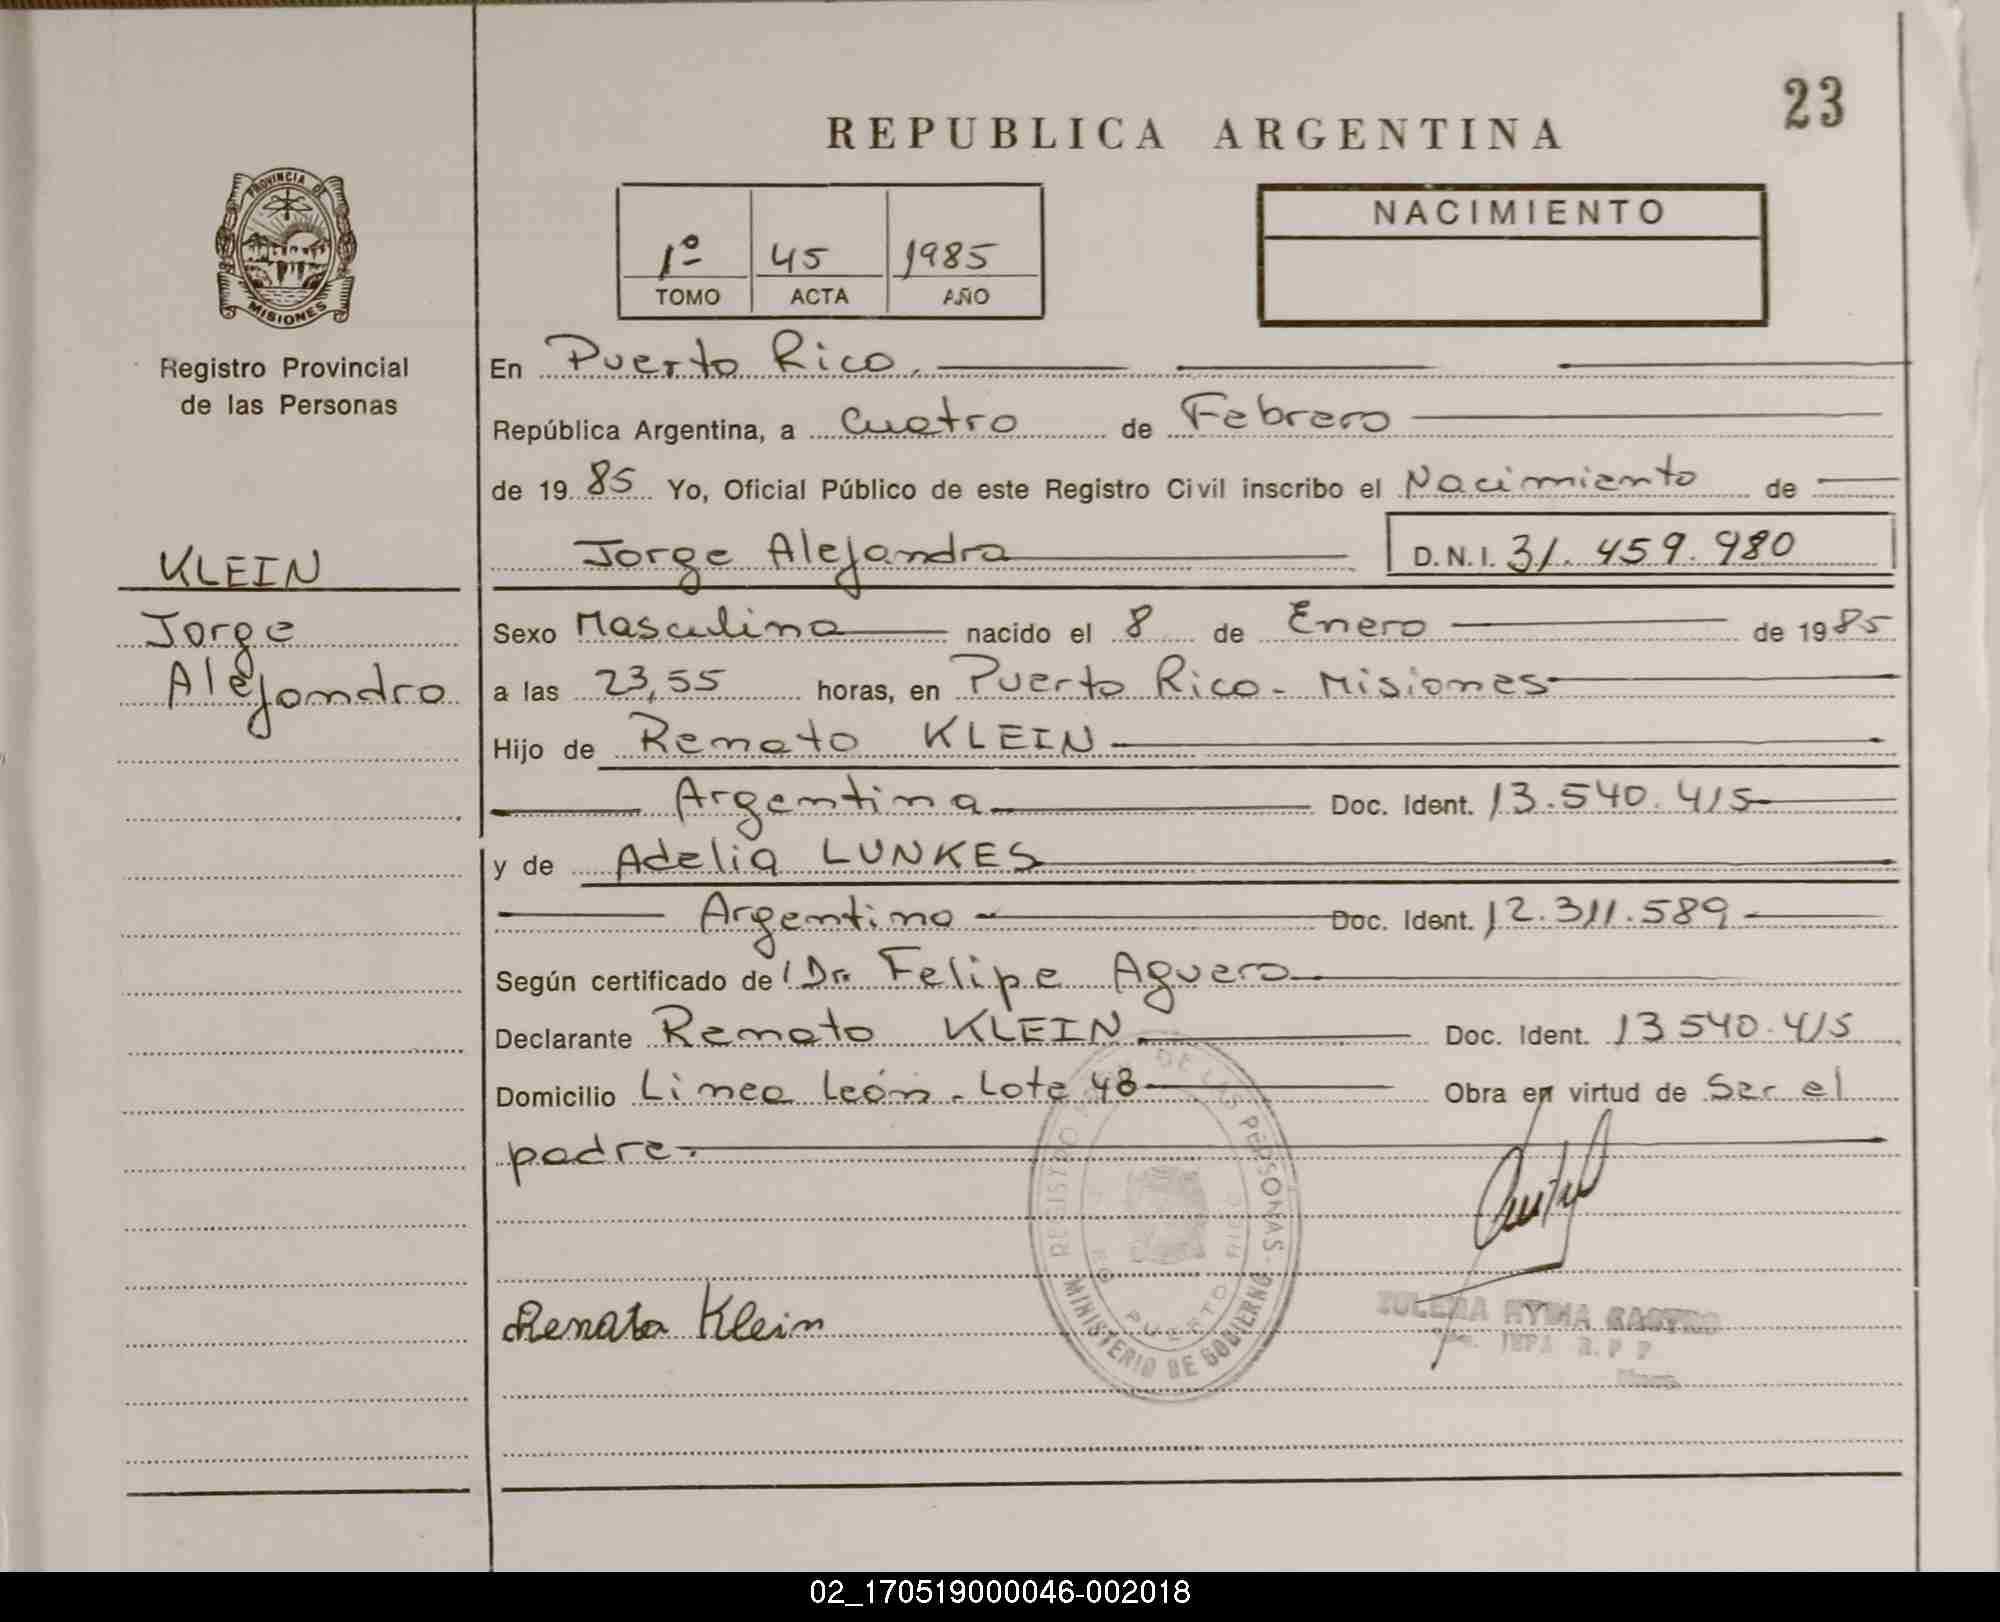 23
REPUBLICA ARGENTINA
PROVINCIA DE
MISIONES
Registro Provincial
de las Personas
KLEIN
Jorge
Alejandro
1º 45 1985
TOMO ACTA AÑO
NACIMIENTO
En Puerto Rico.
República Argentina, a Cuatro de Febrero
de 1985 Yo, Oficial Público de este Registro Civil inscribo el Nacimiento de
Jorge Alejandro D.N.I. 31.459.980
Sexo Masculino nacido el 8 de Enero de 1985
a las 23,55 horas, en Puerto Rico - Misiones
Hijo de Renato KLEIN
Argentina Doc. Ident. 13.540.415
y de Adelia LUNKES
Argentina Doc. Ident. 12.311.589
Según certificado de Dr. Felipe Aguero
Declarante Renato KLEIN Doc. Ident. 13.540.415
Domicilio Linea León - Lote 48 Obra en virtud de Ser el
padre
REGISTRO DE LAS PERSONAS
PUERTO RICO
MINISTERIO DE GOBIERNO
Renato Klein
CASTRO
02_170519000046-002018